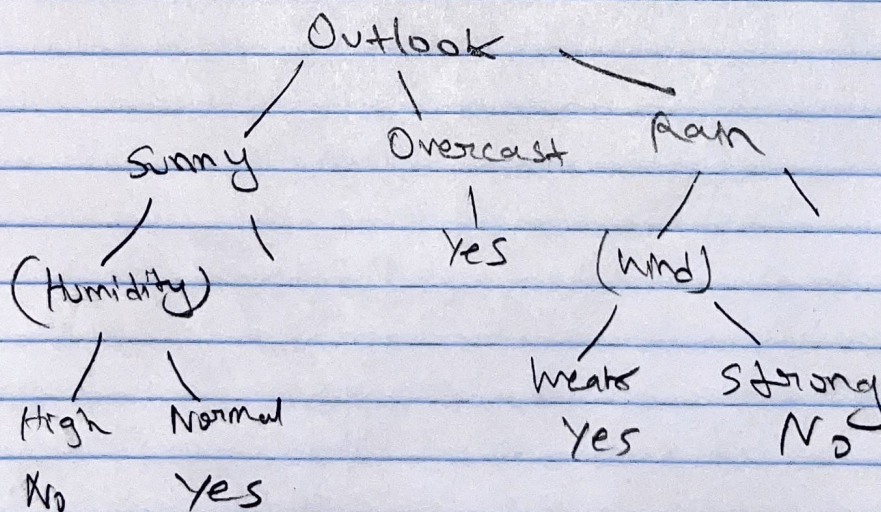 Outlook
Sunny Overcast Rain
(Humidity) Yes (Wind)
High Normal Weak Strong
No Yes Yes No